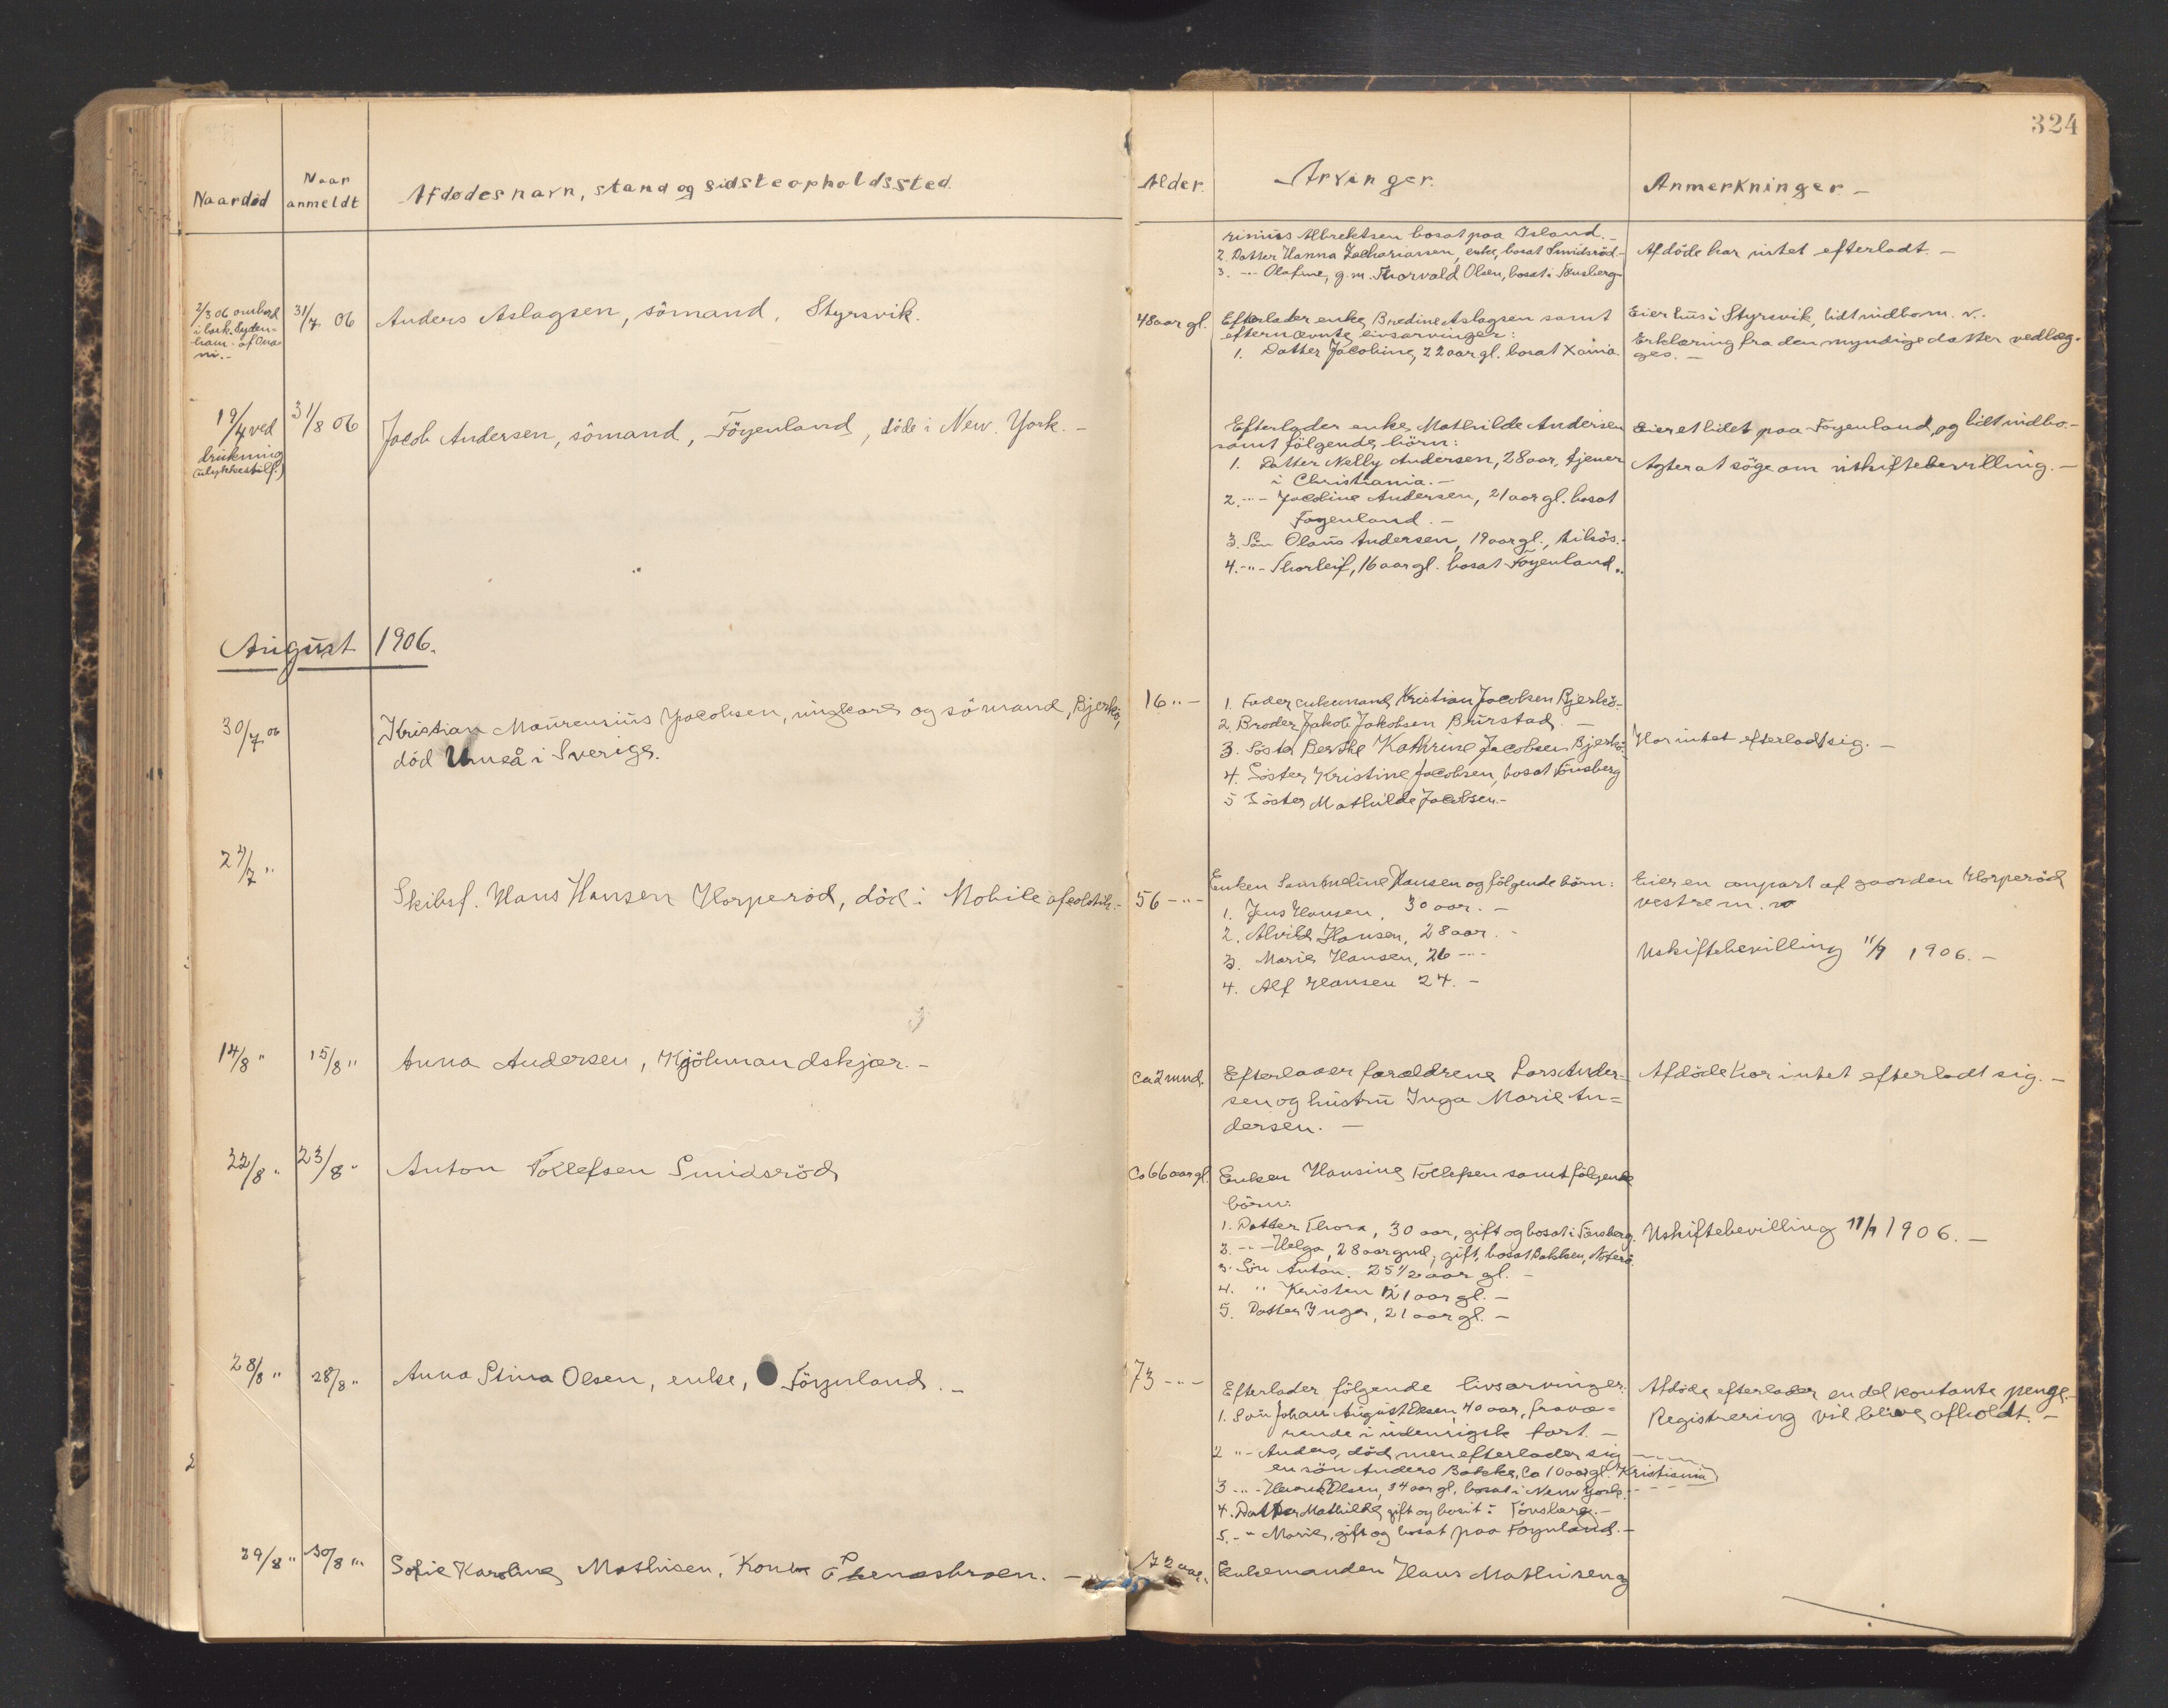 324
Naar död
Naar anmeldt
Afdødes navn, stand og sidste opholdssted.
Alder.
Arvinger.
Anmerkninger. –
rinius Albrektsen bosat paa Island. –
2. Datter Hanna Zachariassen, enke, bosat Smidsröd. –
3. –"– Olafine, g. m. Thorvald Olsen, bosat i Tönsberg
Afdöde har intet efterladt. –
2/3 06 ombord
i bark.
31/7 06
Anders Aslagsen, sömand, Styrsvik.
48 aar gl.
Efterlader enke, Bredine Aslagsen samt
efternævnte livsarvinger:
1. Datter Jacobine, 22 aar gl. bosat Xania.
Eier hus i Styrsvik, lidt indbo m. v.
Erklæring fra den myndige datter vedlæg-
ges. –
19/4 ved
drukning
(ulykkestilf.)
31/8 06
Jacob Andersen, sömand, Föyenland, döde i New. York. –
Efterlader enke, Mathilde Andersen
samt fölgende börn:
1. Datter Nelly Andersen, 28 aar, tjener
i Christiania. –
2. –"– Jacoline Andersen, 21 aar gl. bosat
Foyenland. –
3. Sön Olaus Andersen, 19 aar gl., tilsös.
4. –"– Thorleif, 16 aar gl. bosat Föyenland.
Eier et lidet paa Foyenland og lidt indbo. –
Agter at söge om uskiftebevilling. –
August 1906.
30/7 06
Kristian Maurensius Jacobsen, ungkarl og sömand, Bjerkö,
död Umeå i Sverige.
16 "–
1. Fader enkemand Kristian Jacobsen Bjerkö. –
2. Broder Jakob Jakobsen Burstad. –
3. Söster Berthe Kathrine Jacobsen Bjerkö.
4. Söster Kristine Jacobsen, bosat Tönsberg
5 Söster Mathilde Jacobsen. –
Har intet efterladt sig. –
27/7 "
Skibsf. Hans Hansen Horperöd, död i Mobile
56 –"–
Enken Samueline Hansen og fölgende börn:
1. Jens Hansen, 30 aar. –
2. Alvild Hansen, 28 aar. –
3. Marie Hansen, 26 –"–
4. Alf Hansen 24. –
Eier en anpart af gaarden Horperöd
vestre m. v
Uskiftebevilling 11/9 1906. –
14/8 "
15/8 "
Anna Andersen, Kjöbmandskjær. –
Ca 2 mnd.
Efterlader forældrene Lars Ander-
sen og hustru Inga Marie An=
dersen. –
Afdöde har intet efterladt sig. –
22/8 "
23/8 "
Anton Tollefsen Smidsröd
Ca 66 aar gl.
Enken Hansine Tollefsen samt fölgende
börn:
1. Datter Thora, 30 aar, gift og bosat i Tönsberg.
2. –"– Helga, 28 aar gml, gift, bosat Bakken, Nöterö.
3. Sön Anton. 25 1/2 aar gl. –
4. " Kristen 21 aar gl. –
5. Datter Inga, 21 aar gl. –
Uskiftebevilling 11/9 1906. –
28/8 "
28/8 "
Anna Stina Olsen, enke, Föynland. –
73 –"–
Efterlader fölgende livsarvinger:
1. Sön Johan August Olsen, 40 aar, fravæ-
rende i udenrigsk fart. –
2 "– Anders, död, men efterlader sig
en sön Anders Bakke, Ca 10 aar gl. Kristiania
3 –"– Olsen, 34 aar gl, bosat i New York.
4. Datter Mathilde, gift og bosit i Tönsberg. –
5. –" Marie, gift og bosat paa Foynland. –
Afdöde efterlader en del kontante penge. –
Registrering vil blive afholdt. –
29/8 "
30/8 "
Sofie Karoline Mathisen, Kone
72 aar.
Enkemanden Hans Mathisen og